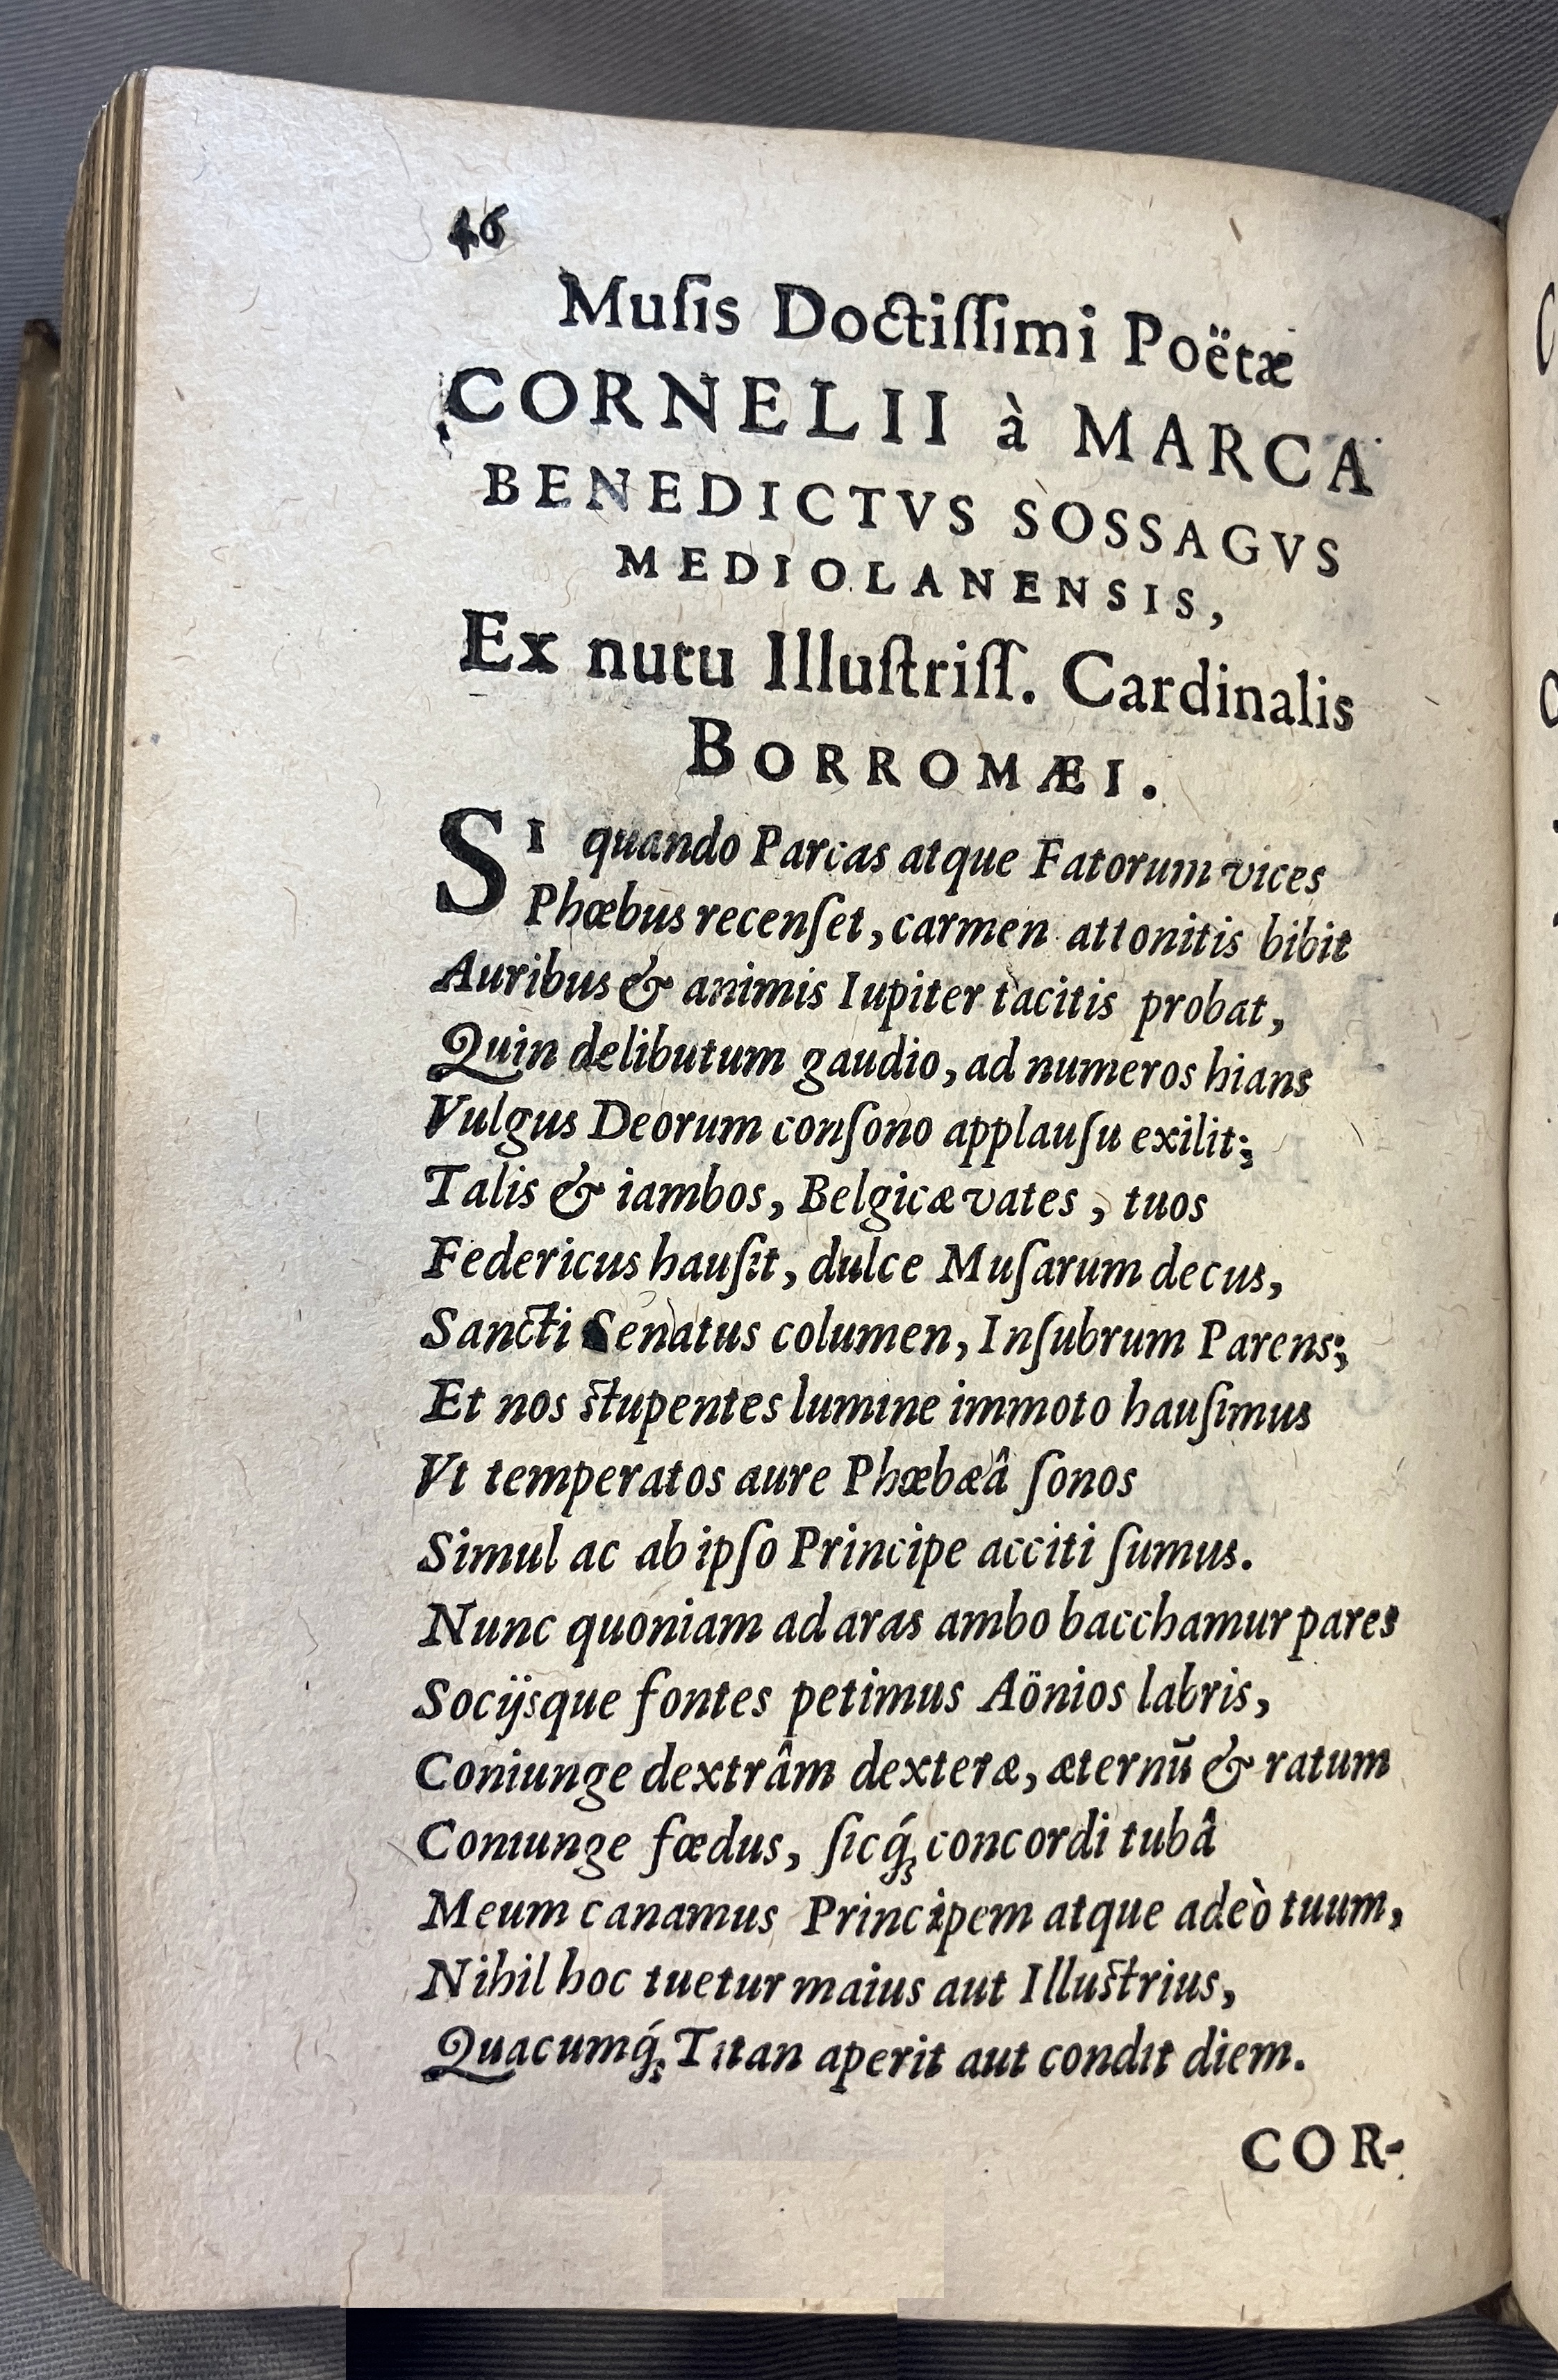 46
Muſis Doctiſſimi Poëtæ
CORNELII à MARCA
BENEDICTVS SOSSAGVS
MEDIOLANENSIS,
Ex nutu Illuſtriſſ. Cardinalis
BORROMÆI.
SI quando Parcas atque Fatorum vices
Phœbus recenſet, carmen attonitis bibit
Auribus & animis Iupiter tacitis probat,
Quin delibutum gaudio, ad numeros hians
Vulgus Deorum conſono applauſu exilit;
Talis & iambos, Belgicæ vates, tuos
Federicus hauſit, dulce Muſarum decus,
Sancti Senatus columen, Inſubrum Parens;
Et nos ſtupentes lumine immoto hauſimus
Vt temperatos aure Phœbæâ ſonos
Simul ac ab ipſo Principe acciti ſumus.
Nunc quoniam ad aras ambo bacchamur pares
Socijsque fontes petimus Aönios labris,
Coniunge dextrâm dexteræ, æternū & ratum
Coniunge fœdus, ſicq́; concordi tubâ
Meum canamus Principem atque adeò tuum,
Nihil hoc tuetur maius aut Illuſtrius,
Quacumq́; Titan aperit aut condit diem.
COR-